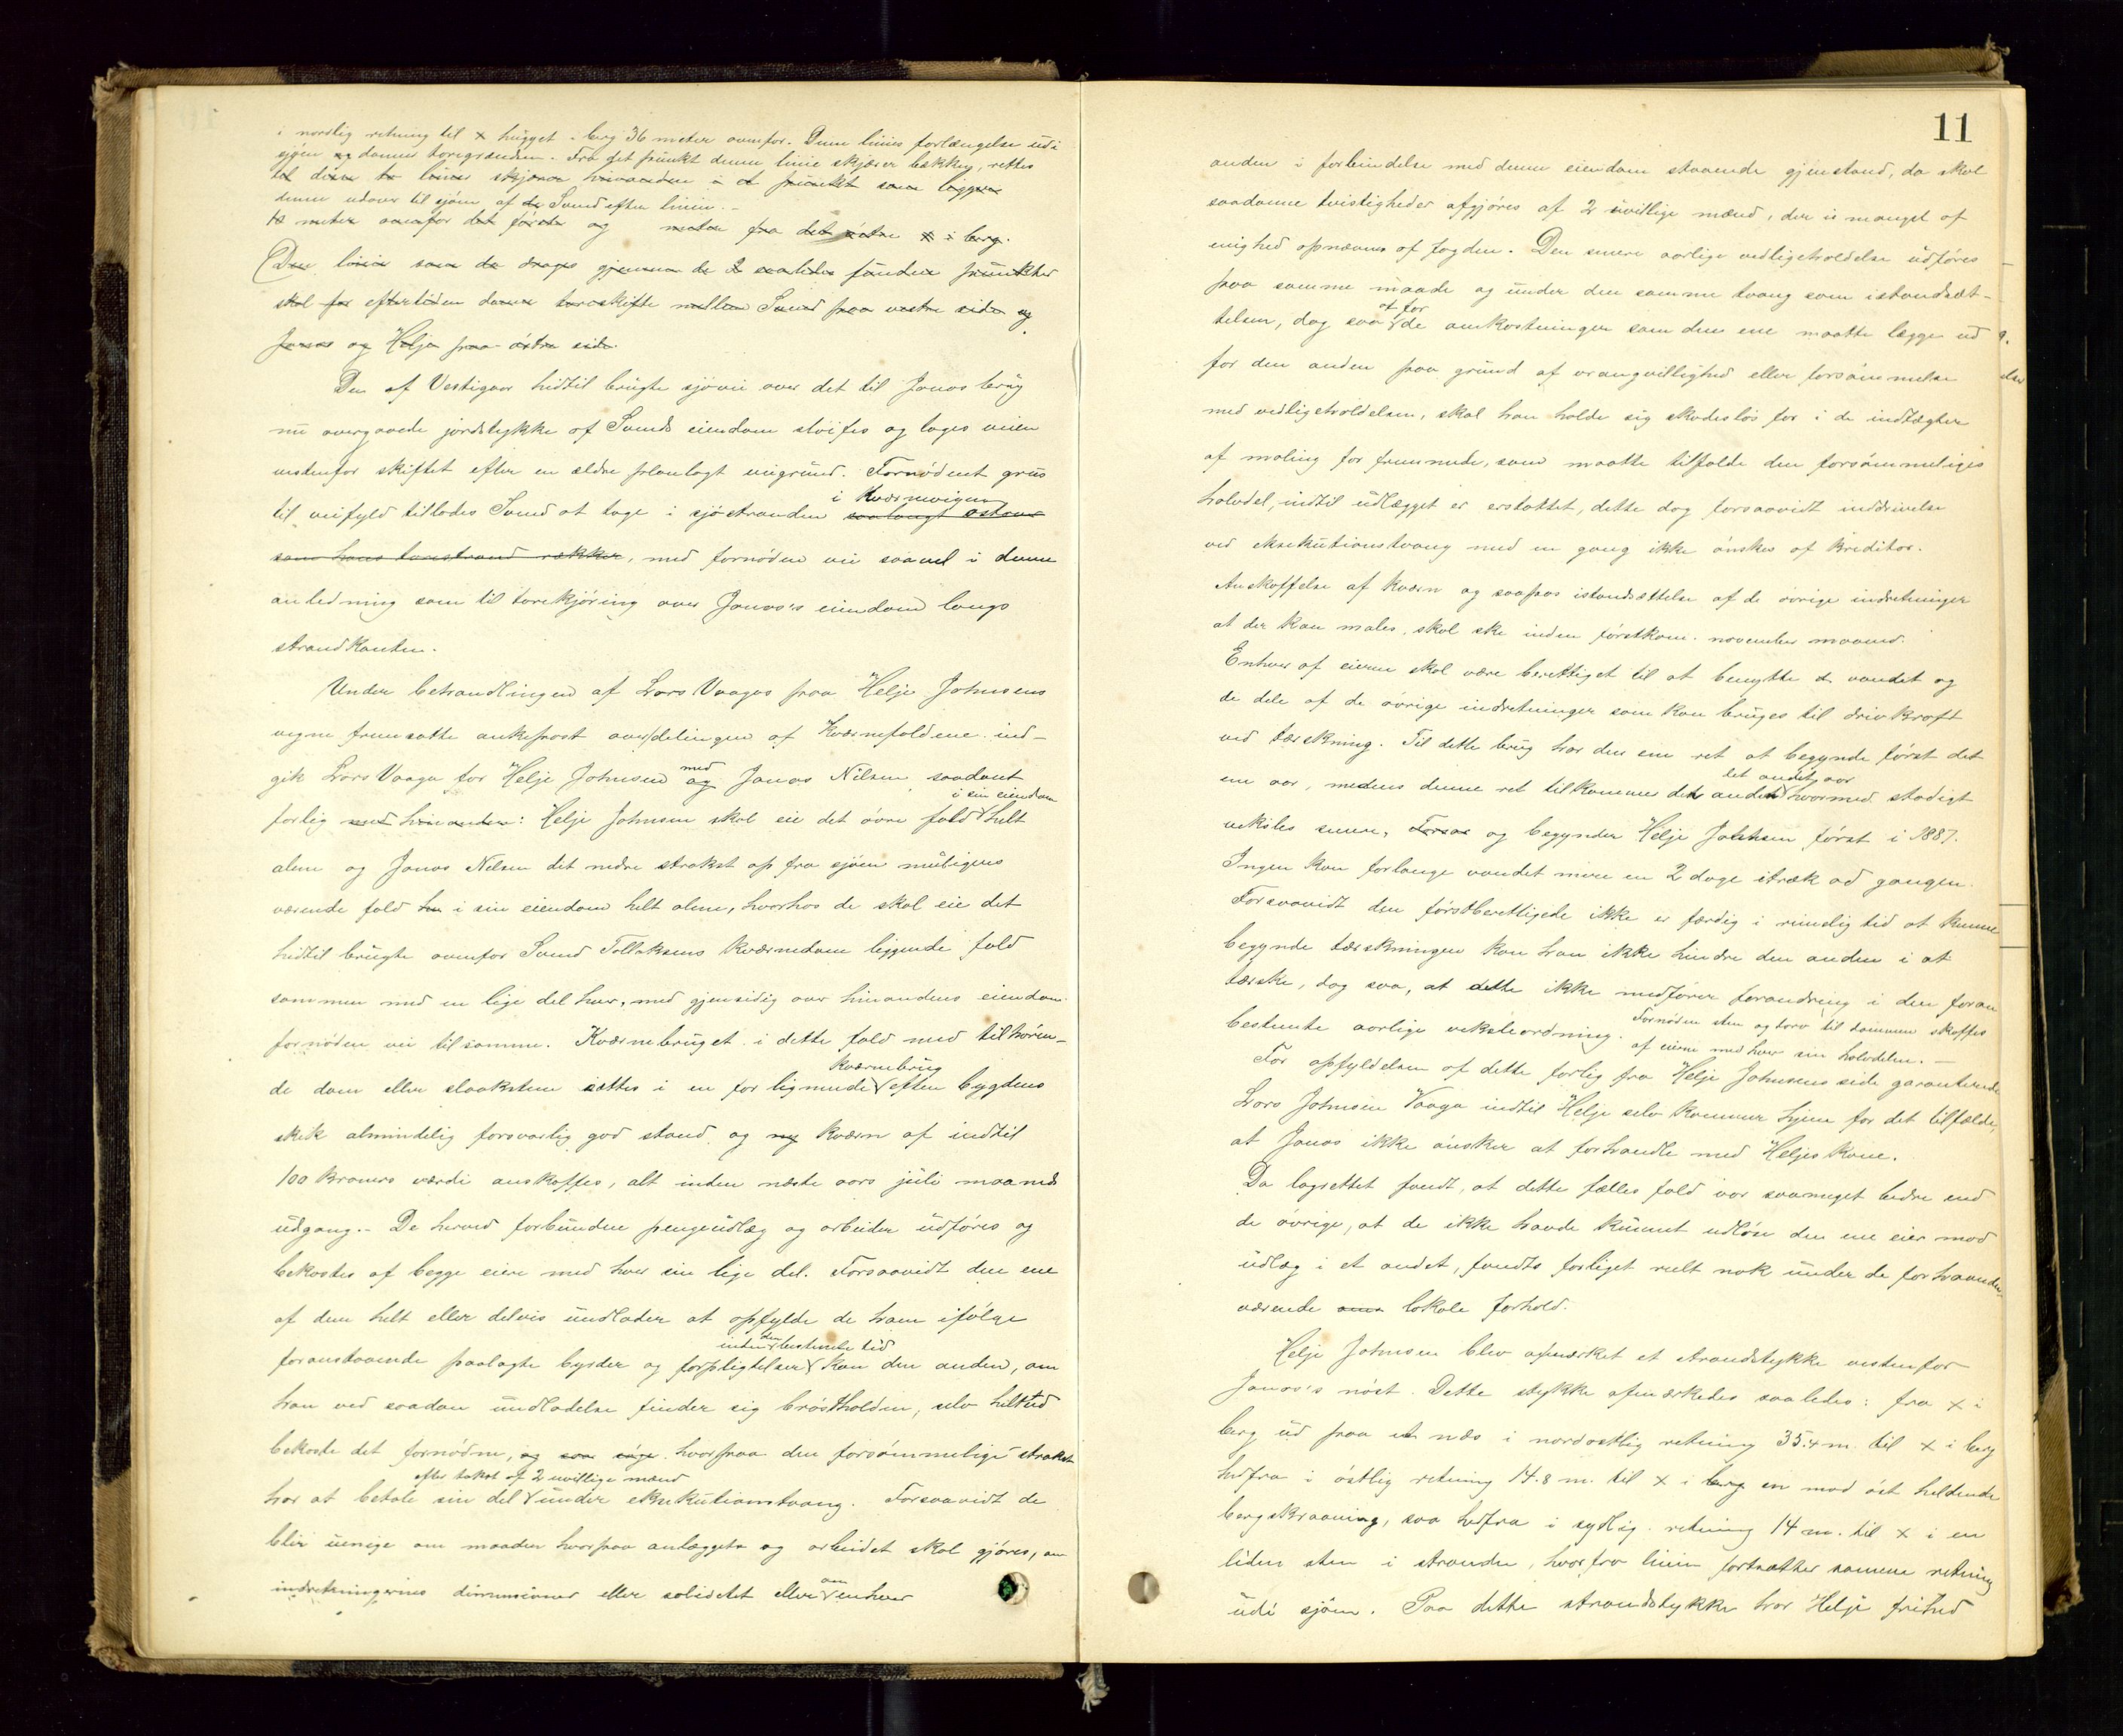 i nordlig retning til x hugget i berg 36 meter ovenfor. Denne linies forlængelse ud i
sjøen og danner toregrænden. Fra det punkt denne linie skjærer bækken, rettes
til disse to linier skjærer hinanden i et punkt som ligger
denne udover til sjøen af de Svend efter linien. –
10 meter ovenfor det første og meter fra det østre x i berg.
(Den linie som da drages gjennem de 2 saaledes fundne punkter
skal for eftertiden danne toreskifte mellem Svend paa vestre side og
Jonas og Helje paa østre side.
Den af Vestigaar hidtil brugte sjøvei over det til Jonas brug
nu overgaaede jordstykke af Svends eiendom sløifes og lages veien
vestenfor skiftet efter en ældre planlagt veigrund. Fornødent grus
i Kværnevigen
til veifyld tillodes Svend at tage i sjøstranden saalangt østover
som hans torestrand rækker, med fornøden vei saavel i denne
anledning som til torekjøring over Jonas's eiendom langs
strandkanten.
Under behandlingen af Lars Vaages paa Helje Johnsens
vegne fremsatte ankepost over delingen af Kværnefaldene ind-
med
gik Lars Vaage for Helje Johnsen og Jonas Nilsen saadant
i sin eiendom
forlig med hinanden: Helje Johnsen skal eie det øvre fald helt
alene og Jonas Nilsen det nedre strakst op fra sjøen muligens
værende fald han i sin eiendom helt alene, hvorhos de skal eie det
hidtil brugte ovenfor Svend Tollaksens Kværnedam liggende fald
sammen med en lige del hver, med gjensidig over hinandens eiendom
fornøden vei til samme. Kværnebruget i dette fald med tilhøren-
kværnebrug
de dam eller slaaksten sættes i en for lignende efter bygdens
skik almindelig forsvarlig god stand, og ny kværn af indtil
100 Kroners værdi anskaffes, alt inden næste aars juli maaneds
udgang. – De herved forbundne pengeudlæg og arbeider udføres og
bekostes af begge eiere med hver sin lige del. Forsaavidt den ene
af dem helt eller delvis undlader at opfylde de ham ifølge
inden den bestemte tid
foranstaaende paalagte byrder og forpligtelser kan den anden, om
han ved saadan undladelse finder sig brøstholden, selv helt ud
bekoste det fornødne, og saa søge hvorpaa den forsømmelige strakst
efter takst af 2 uvillige mænd
har at betale sin del under eksekutionstvang. Forsaavidt de
blir uenige om maaden hvorpaa anlægget og arbeidet skal gjøres, om
om
indretningernes dimensioner eller soliditet eller enhver
11
anden i forbindelse med denne eiendom staaende gjenstand, da skal
saadanne tvistigheder afgjøres af 2 uvillige mænd, der i mangel af
enighed opnævnes af fogden. Den senere aarlige vedligeholdelse udføres
paa samme maade og under den samme tvang som istandsæt-
at for
telsen, dog saa de omkostninger som den ene maatte lægge ud
for den anden paa grund af vrangvillighed eller forsømmelse
med vedligeholdelsen, skal han holde sig skadesløs for i de indtægter
af maling for fremmede, som maatte tilfalde den forsømmeliges
halvdel, indtil udlægget er erstattet, dette dog forsaavidt inddrivelse
ved eksekutionstvang med en gang ikke ønskes af kreditor.
Anskaffelse af kværn og saapas istandsættelse af de øvrige indretninger
at der kan males, skal ske inden førstkom. november maaned.
Enhver af eierne skal være berettiget til at benytte de vandet og
de dele af de øvrige indretninger som kan bruges til drivkraft
ved tærskning. Til dette brug har den ene ret at begynde først det
det andet aar
ene aar, medens denne ret tilkommer den anden hvormed stadigt
veksles senere, og begynder Helje Johnsen først i 1887.
Ingen kan forlange vandet mere en 2 dage itræk ad gangen.
Forsaavidt den førstberettigede ikke er færdig i rimelig tid at kunne
begynde tærskningen kan han ikke hindre den anden i at
tærske, dog saa, at dette ikke medfører forandring i den foran
bestemte aarlige veksleordning. Fornøden sten og torv til dammen skaffes
af eierne med hver sin halvdelen. –
For opfyldelsen af dette forlig fra Helje Johnsens side garanterede
Lars Johnsen Vaage indtil Helje selv kommer hjem for det tilfælde,
at Jonas ikke ønsker at forhandle med Heljes kone.
Da lagrettet fandt, at dette fælles fald var saameget bedre end
de øvrige, at de ikke havde kunnet udløse den ene eier mod
udlæg i et andet, fandtes forliget reelt nok under de forhaanden-
værende lokale forhold.
Helje Johnsen blev afmærket et strandstykke vestenfor
Jonas's nøst. Dette stykke afmærkedes saaledes: fra x i
berg ud paa et næs i nordostlig retning 35.4 m. til x i berg
herfra i østlig retning 14.8 m. til x i berg en mod øst heldende
bergskraaning, saa herfra i sydlig retning 14 m. til x i en
liden sten i stranden, hvorfra linien fortsætter samme retning
ud i sjøen. Paa dette strandstykke har Helje frihed